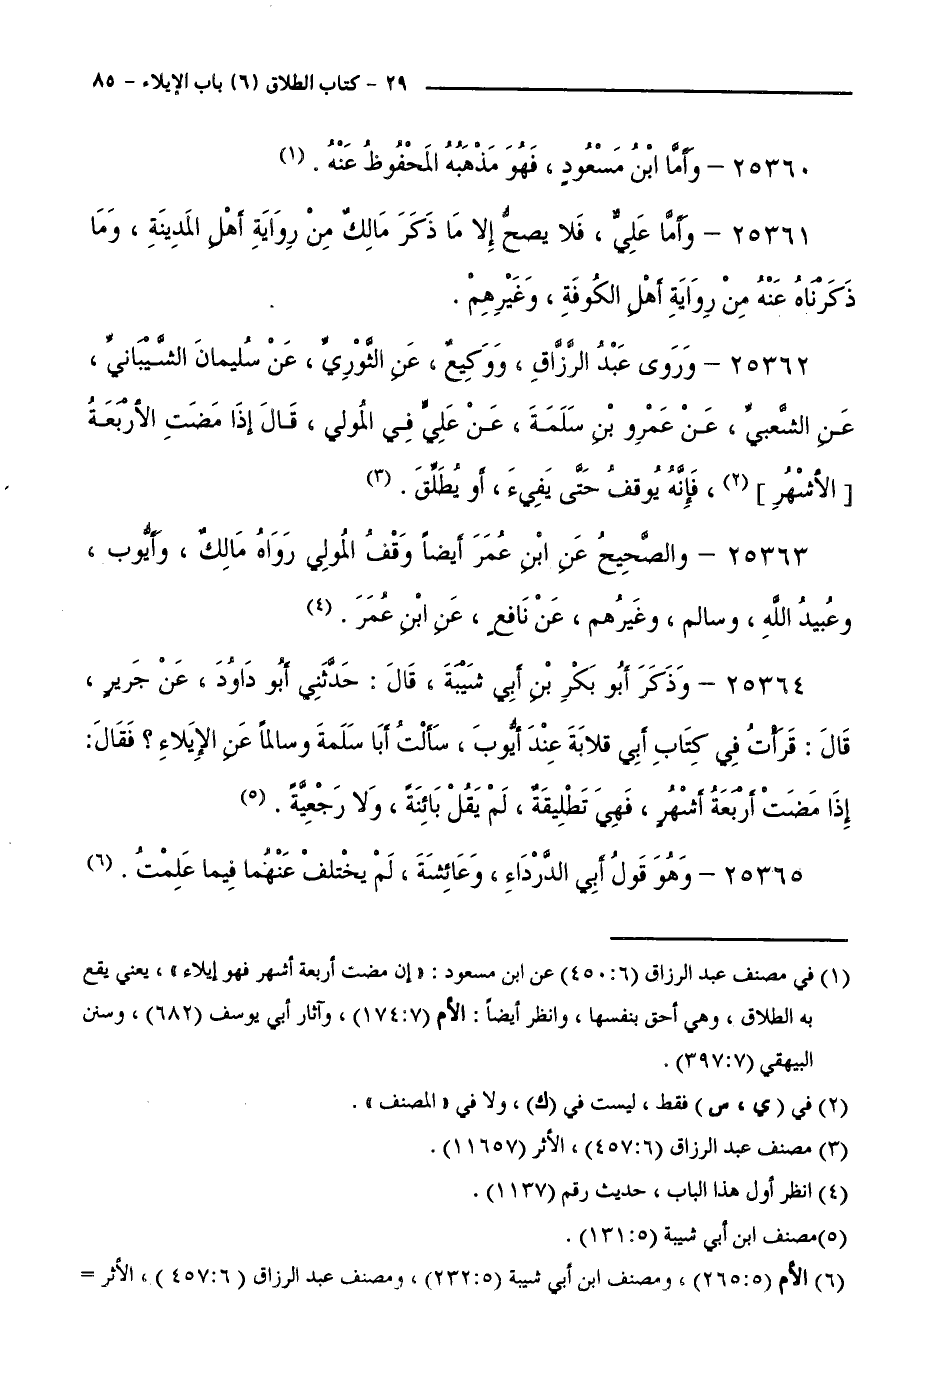 ٢٩ - كتاب الطلاق (٦) باب الإيلاء - ٨٥
٢٥٣٦٠ - وَأَمَّا ابْنُ مَسْعُودٍ ، فَهُوَ مَذْهَبُهُ المَحْفُوظُ عَنْهُ . (١)
٢٥٣٦١ - وَأَمَّا عَلِيٌّ ، فَلا يصحُّ إِلا مَا ذَكَرَ مَالِكٌ مِنْ رِوَايَةِ أَهْلِ المَدِينَةِ ، وَمَا
ذَكَرْنَاهُ عَنْهُ مِنْ رِوَايَةِ أَهْلِ الكُوفَةِ ، وَغَيْرِهِمْ .
٢٥٣٦٢ - وَرَوَى عَبْدُ الرَّزَّاقِ ، وَوَكِيعٌ ، عَنِ الثَّوْرِيِّ ، عَنْ سُلِيمانَ الشَّيْبَانِيِّ ،
عَنِ الشَّعبيِّ ، عَنْ عَمْرِو بْنِ سَلَمَةَ ، عَنْ عَلِيٍّ فِي المُولي ، قَالَ إِذَا مَضَتِ الأَرْبَعَةُ
[ الأَشْهُرِ ] (٢) ، فَإِنَّهُ يُوقفُ حَتَّى يَفِيءَ ، أَو يُطَلِّقَ . (٣)
٢٥٣٦٣ - والصَّحِيحُ عَنِ ابْنِ عُمَرَ أَيضاً وَقْفُ المُولي رَوَاهُ مَالِكٌ ، وَأَيُّوب ،
وعُبيدُ اللَّهِ ، وسالم ، وغَيرُهم ، عَنْ نَافعٍ ، عَنِ ابْنِ عُمَرَ . (٤)
٢٥٣٦٤ - وَذَكَرَ أَبُو بَكْرِ بْنِ أَبِي شَيْبَةَ ، قَالَ : حَدَّثَنِي أَبُو دَاوُدَ ، عَنْ جَريرٍ ،
قَالَ : قَرَأْتُ فِي كِتَابِ أَبِي قلابَةَ عِنْدَ أَيُّوبَ ، سَأَلْتُ أَبَا سَلَمةَ وسالماً عَنِ الإِيَلاءِ ؟ فَقَالَ:
إِذَا مَضَتْ أَرْبَعَةُ أَشْهُرٍ ، فَهِيَ تَطْلِيقَةٌ ، لَمْ يَقُلْ بَائِنَةً ، وَلا رَجْعِيَّةً . (٥)
٢٥٣٦٥ - وَهُوَ قَولُ أَبِي الدَّرْدَاءِ ، وَعَائِشَةَ ، لَمْ يخْتلفْ عَنْهُما فِيما عَلِمْتُ . (٦)
(١) في مصنف عبد الرزاق (٤٥٠:٦) عن ابن مسعود : « إن مضت أربعة أشهر فهو إيلاء » ، يعني يقع
به الطلاق ، وهي أحق بنفسها ، وانظر أيضاً : الأم (١٧٤:٧) ، وآثار أبي يوسف (٦٨٢) ، وسنن
البيهقي (٣٩٧:٧) .
(٢) في ( ي ، س ) فقط ، ليست في (ك) ، ولا في « المصنف » .
(٣) مصنف عبد الرزاق (٤٥٧:٦) ، الأثر (١١٦٥٧) .
(٤) انظر أول هذا الباب ، حديث رقم (١١٣٧) .
(٥)مصنف ابن أبي شيبة (١٣١:٥) .
(٦) الأم (٢٦٥:٥) ، ومصنف ابن أبي شيبة (٢٣٢:٥) ، ومصنف عبد الرزاق ( ٤٥٧:٦ ) ، الأثر =